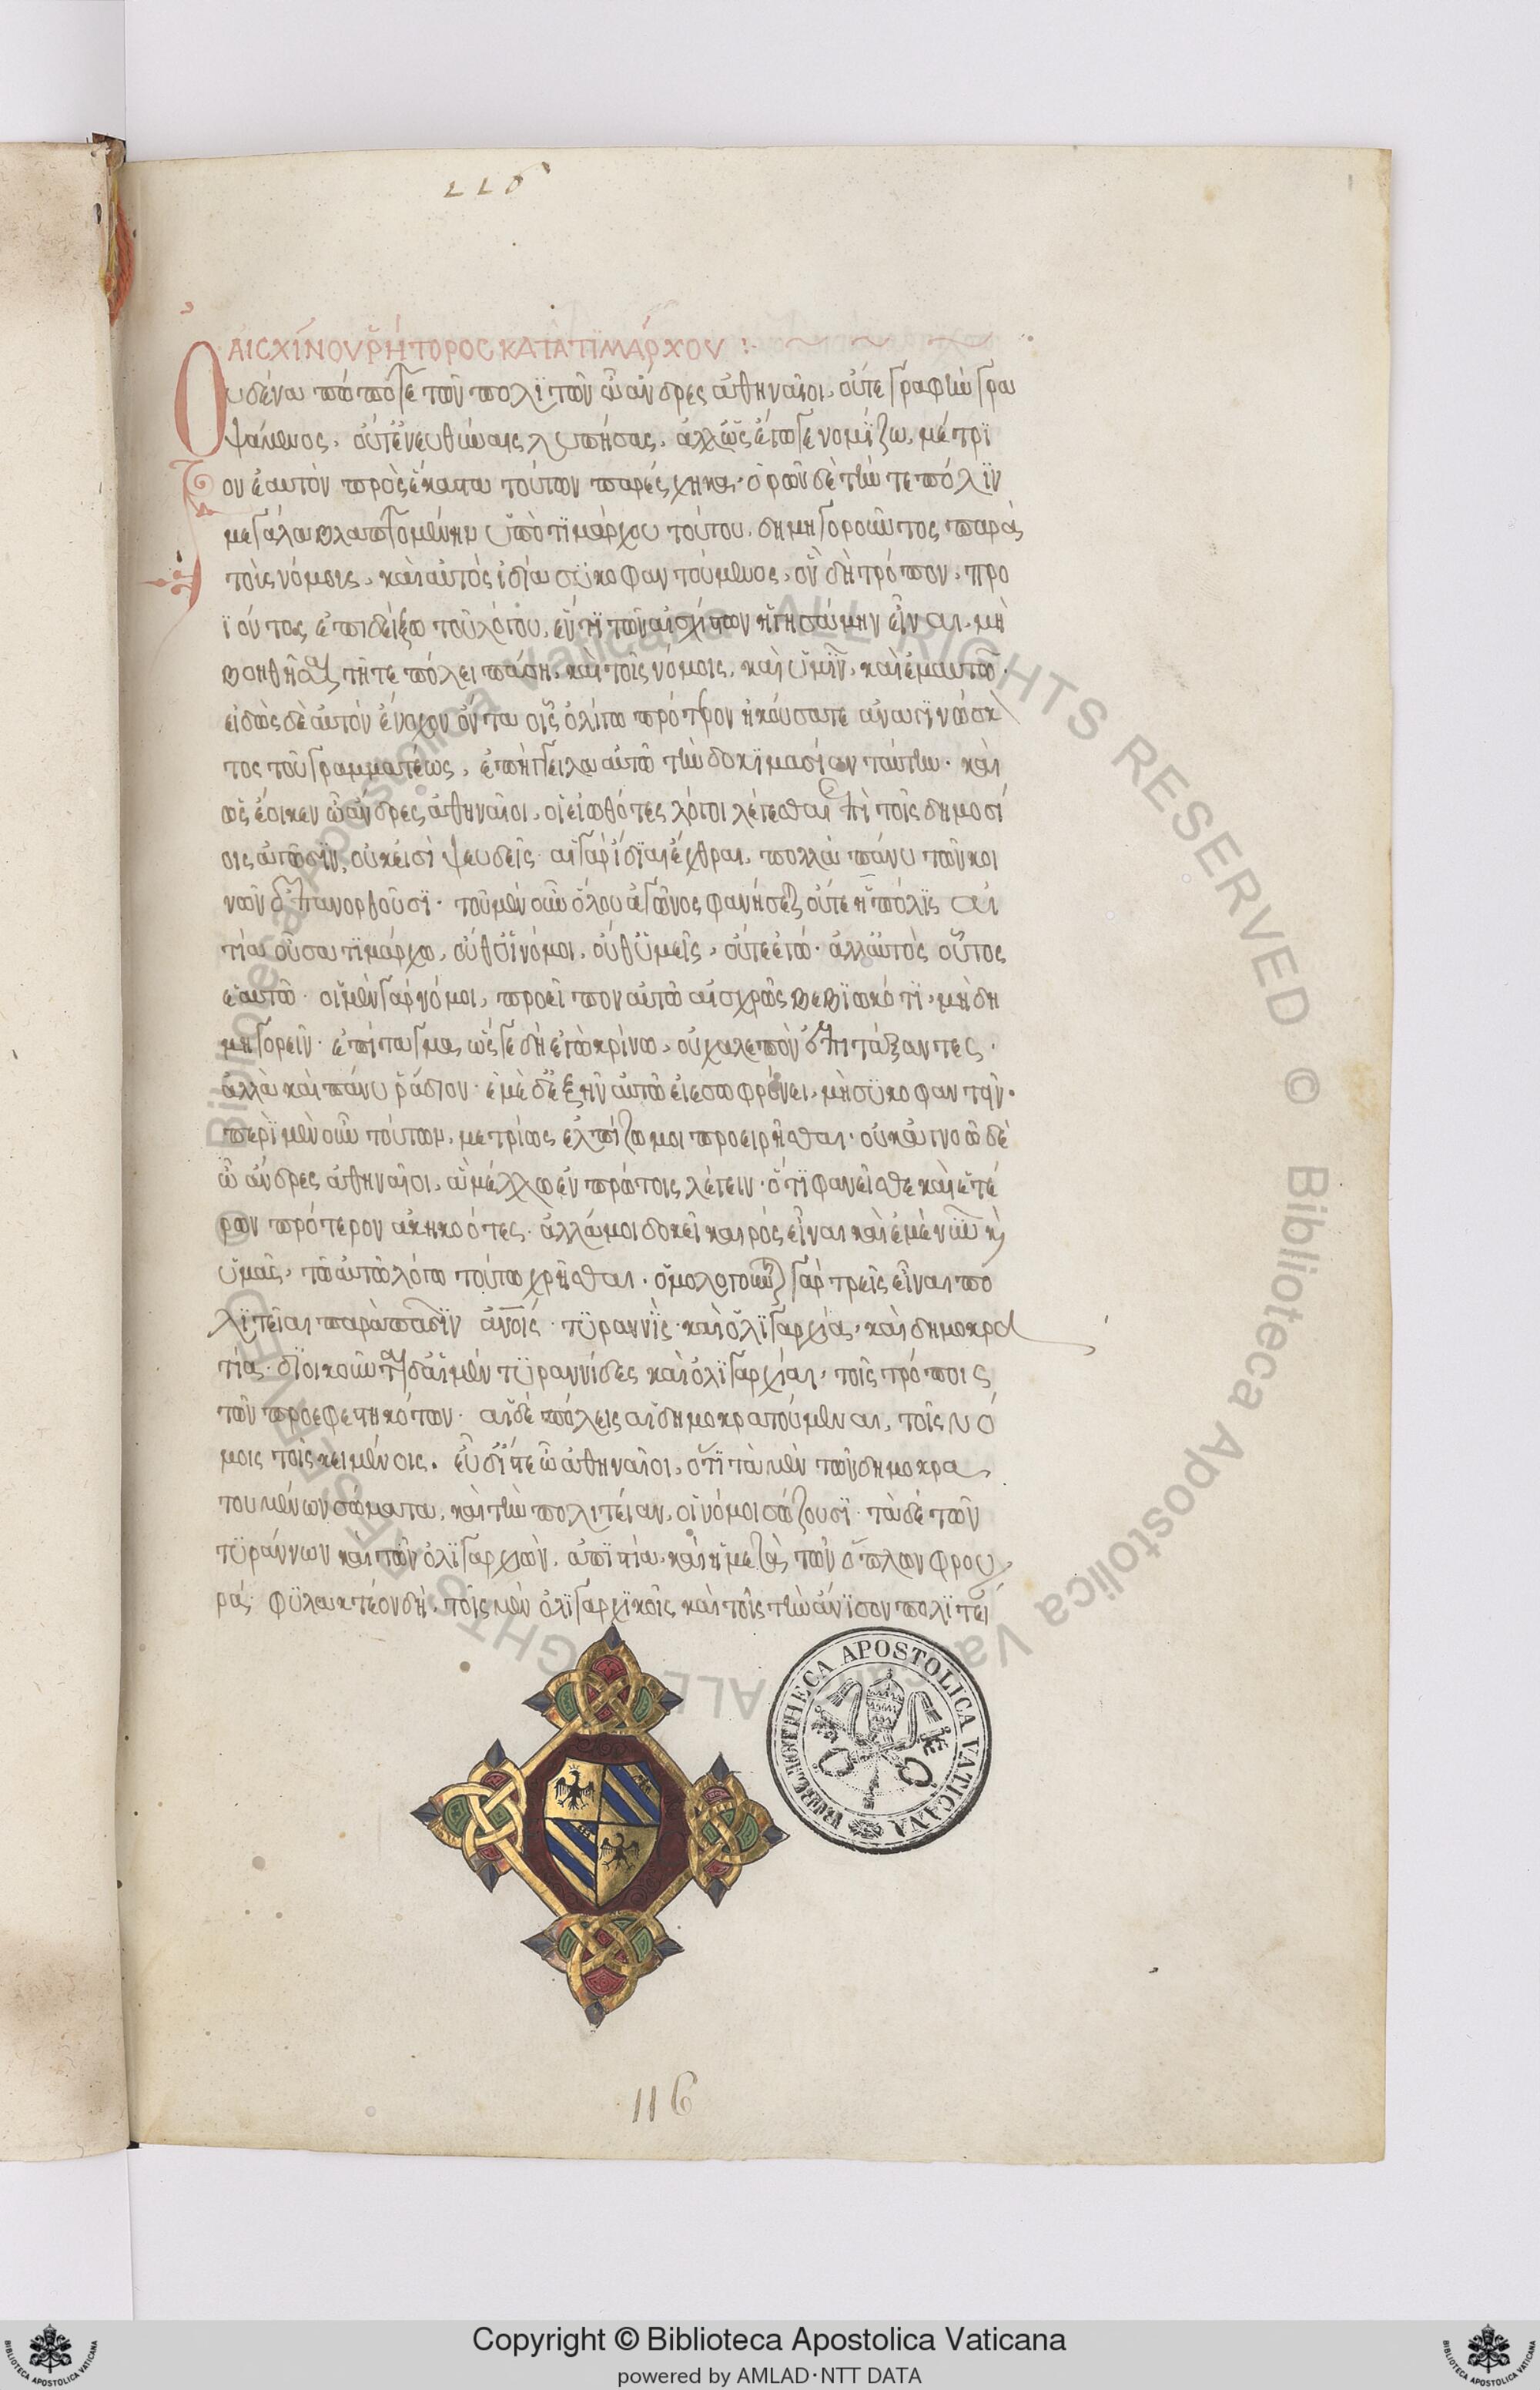 116
ΑΙΣΧΙΝΟΥ ῬΗΤΟΡΟΣ ΚΑΤΑ ΤΙΜΑΡΧΟΥ :
Οὐδένα πώποτε τῶν πολϊτῶν ὦ ἄνδρες ἀθηναῖοι, οὔτε γραφὴν γρα
ψάμενος, οὔτ' ἐν εὐθύναις λυπήσας, ἀλλ' ὡς ἔγωγε νομΐζω, μέτρϊ
ον ἐμαυτὸν πρὸς ἕκαστα τούτων παρέσχηκα· ὁρῶν δὲ τήν τε πόλϊν
μεγάλα βλαπτομένην ὑπὸ τϊμάρχου τούτου, δημηγοροῦντος παρὰ
τοὺς νόμους, καὶ αὐτὸς ἰδία συκοφαντούμενος, ὃν δὴ τρόπον, προ
ϊόντος ἐπιδείξω τοῦ λόγου, ἕν τϊ τῶν αἰσχίστων ἡγησάμην εἶναι, μὴ
βοηθῆσαι τῆ τε πόλει πάση, καὶ τοῖς νόμοις, καὶ ὑμῖν, καὶ ἐμαυτῶ·
εἰδὼς δὲ αὐτὸν ἔνοχον ὄντα οἷς ὀλίγω πρότερον ἠκούσατε ἀναγϊνώσκ
τος τοῦ γραμματέως, ἐπήγγειλα αὐτῶ τὴν δοκϊμασίαν ταύτην· καὶ
ὡς ἔοικεν ὦ ἄνδρες ἀθηναῖοι, οἱ εἰωθότες λόγοι λέγεσθαι ἐπὶ τοῖς δημοσί
οις ἀγῶσϊν, οὐκ εἰσὶ ψευδεῖς· αἱ γὰρ ἴδϊαι ἔχθραι, πολλὰ πάνυ τῶν κοι
νῶν ἐπανορθοῦσϊ· τοῦ μὲν οὖν ὅλου ἀγῶνος φανήσεται οὔτε ἡ πόλϊς αἰ
τία οὖσα τϊμάρχω, οὔθ' οἱ νόμοι, οὔθ' ὑμεῖς, οὔτε ἐγώ· ἀλλ' αὐτὸς οὗτος
ἑαυτῶ· οἱ μὲν γὰρ νόμοι, προεῖπον αὐτῶ αἰσχρῶς βεβϊωκότϊ, μὴ δη
μηγορεῖν· ἐπίταγμα, ὥς γε δὴ ἐγὼ κρίνω, οὐ χαλεπὸν ἐπιτάξαντες·
ἀλλὰ καὶ πάνυ ῥάδιον· ἐμὲ δ' ἐξῆν αὐτῶ εἰ ἐσωφρόνει, μὴ συκοφαντῆν·
περὶ μὲν οὖν τούτων, μετρίως ἐλπίζω μοι προειρῆσθαι· οὐκ ἀγνοῶ δὲ
ὦ ἄνδρες ἀθηναῖοι, ἃ μέλλω ἐν πρώτοις λέγειν· ὅτϊ φανεῖσθε καὶ ἑτέ
ρων πρότερον ἀκηκοότες· ἀλλά μοι δοκεῖ καιρὸς εἶναι καὶ ἐμὲ νῦν κ
ὑμᾶς, τῶ αὐτῶ λόγω τούτω χρῆσθαι· ὁμολογοῦνται γὰρ τρεῖς εἶναι πο
λϊτεῖαι παρὰ πᾶσϊν ἀνοις· τϋραννῒς· καὶ ὀλϊγαρχία, καὶ δημοκρα
τία· δϊοικοῦνται δ' αἱ μὲν τϋραννίδες καὶ ὀλϊγαρχίαι, τοῖς τρόποις
τῶν προεφεστηκότων· αἱ δὲ πόλεις αἱ δημοκρατούμεναι, τοῖς νό
μοις τοῖς κειμένοις. εὖ δ' ἴστε ὦ ἀθηναῖοι, ὅτϊ τὰ μὲν τῶν δημοκρα
τουμένων σώματα, καὶ τὴν πολιτείαν, οἱ νόμοι σώζουσϊ· τὰ δὲ τῶν
τϋράννων καὶ τῶν ὀλϊγαρχιῶν, ἀπϊστία, καὶ ἡ μετὰ τῶν ὅπλων φρου
ρά· φϋλακτέον δὴ, τοῖς μὲν ὀλϊγαρχϊκοῖς καὶ τοῖς τὴν ἄνϊσον πολϊτεί
BIBLIOTHECA APOSTOLICA VATICANA
116
© Biblioteca Apostolica Vaticana ALL RIGHTS RESERVED
Copyright © Biblioteca Apostolica Vaticana
powered by AMLAD·NTT DATA